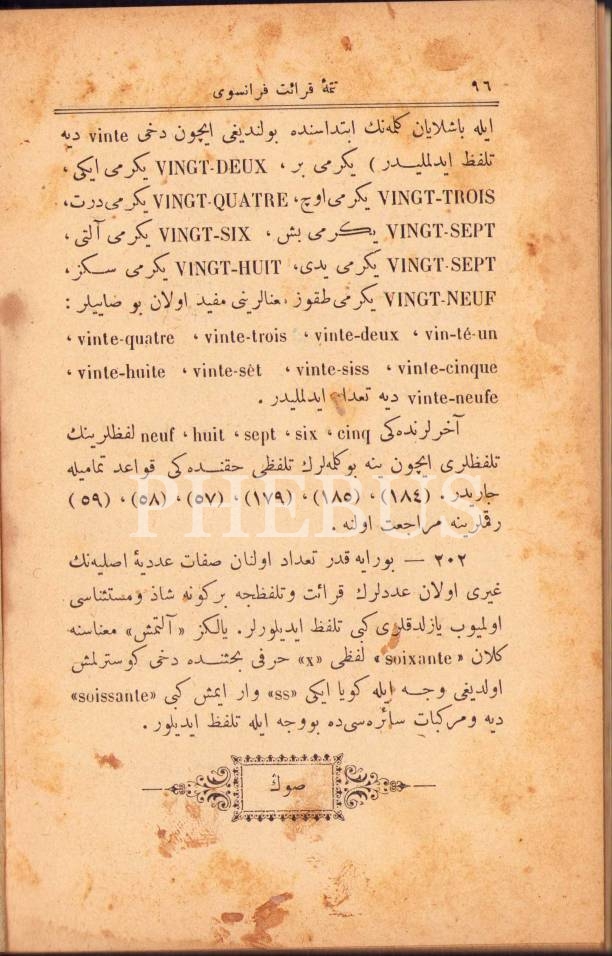 ٩٦ تتمهٔ قرائت فرانسوی
ایله باشلایان كلمه‌نك ابتداسنده بولندیغی ایچون دخی vinte دیه
تلفظ ایدلملیدر) یكرمی بر، VINGT-DEUX یكرمی ایكی،
VINGT-TROIS یكرمی اوچ، VINGT-QUATRE یكرمی درت،
VINGT-SEPT یكرمی بش، VINGT-SIX یكرمی آلتی،
VINGT-SEPT یكرمی یدی، VINGT-HUIT یكرمی سكز،
VINGT-NEUF یكرمی طقوز معنالرینی مفید اولان بو صاییلر :
vin-té-un ، vinte-deux ، vinte-trois ، vinte-quatre ،
vinte-cinque ، vinte-siss ، vinte-sèt ، vinte-huite ،
vinte-neufe دیه تعداد ایدلملیدر .
آخرلرنده‌كی cinq ، six ، sept ، huit ، neuf لفظلرینك
تلفظلری ایچون ینه بوكله‌لرك تلفظی حقنده‌كی قواعد تمامیله
جاریدر . (١٨٤) ، (١٨٥) ، (١٧٩) ، (٥٧) ، (٥٨) ، (٥٩)
رقملرینه مراجعت اولنه .
٢٠٢ — بورایه قدر تعداد اولنان صفات عددیهٔ اصلیه‌نك
غیری اولان عددلرك قرائت وتلفظجه بركونه شاذ ومستثناسی
اولمیوب یازلدقلری كبی تلفظ ایدیلورلر. یالكز «آلتمش» معناسنه
كلان «soixante» لفظی «x» حرفی بحثنده دخی كوسترلمش
اولدیغی وجه ایله كویا ایكی «ss» وار ایمش كبی «soissante»
دیه ومركبات سائره‌سی‌ده بووجه ایله تلفظ ایدیلور .
صوك
PHEBUS